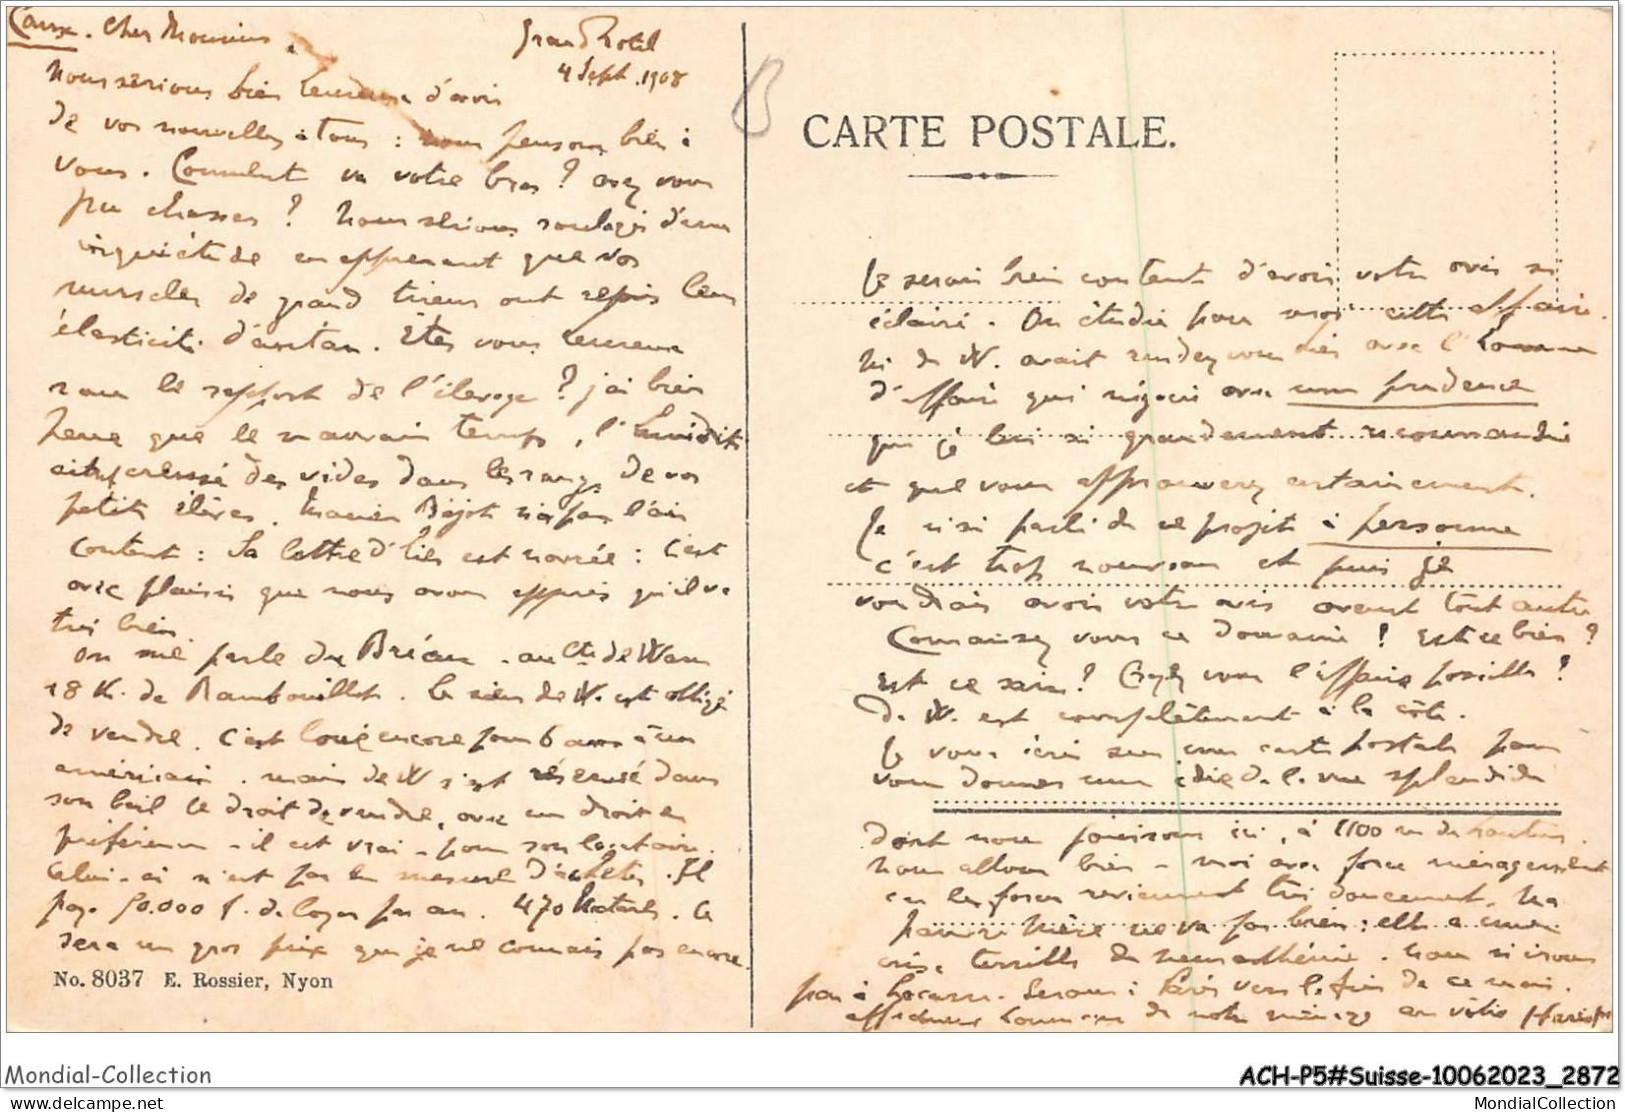 Caux. Cher Monsieur,
Grand Hotel
4 Sept. 1908
Nous serions bien heureux d'avoir
de vos nouvelles à tous : nous pensons bien à
vous. Comment va votre bras ? avez vous
pu chasser ? Nous serions soulagés d'une
inquiétude en apprenant que vos
muscles de grand tireur ont repris leur
élasticité d'antan. Etes vous heureux
sous le rapport de l'élevage ? j'ai bien
peur que le mauvais temps, l'humidité
ait creusé des vides dans les rangs de vos
petits élèves. n'a pas l'air
content : Sa lettre d'hier est navrée : c'est
avec plaisir que nous avons appris qu'il va
très bien.
On me parle du au Cte de
18 K. de Rambouillet. Le sieur de W. est obligé
de vendre. C'est loué encore pour 6 ans à un
américain. mais de W s'est réservé dans
son bail le droit de vendre, avec un droit de
préférence - il est vrai - pour son locataire.
Celui-ci n'est pas en mesure d'acheter. Il
paye 50.000 f. de loyer par an. 470 hectares. Ce
sera un gros prix que je ne connais pas encore.
No. 8037 E. Rossier, Nyon
B
CARTE POSTALE.
Je serais bien content d'avoir votre avis si
éclairé. On étudie pour moi cette affaire.
de W. avait rendez vous hier avec l'homme
d'affaire qui négocie avec une prudence
que je lui ai grandement recommandée
et que vous approuverez certainement.
Je n'ai parlé de ce projet à personne
c'est trop nouveau et puis je
voudrais avoir votre avis avant tout autre
Connaissez vous ce domaine ? Est ce bien ?
Est ce sain ? Croyez vous l'affaire possible ?
De W. est complètement à la côte.
Je vous écris sur une carte postale pour
vous donner une idée de la vue splendide
dont nous jouissons ici, à 1100 m de hauteur.
Nous allons bien - moi avec force ménagements
car les forces reviennent très doucement. Ma
pauvre mère ne va pas bien : elle a une
crise terrible de neurasthénie. Nous n'irons
pas à Locarno. Serons à Paris vers la fin de ce mois.
affectueux hommages de notre ménage au vôtre
Mondial-Collection
ACH-P5#Suisse-10062023_2872
delcampe.net
MondialCollection